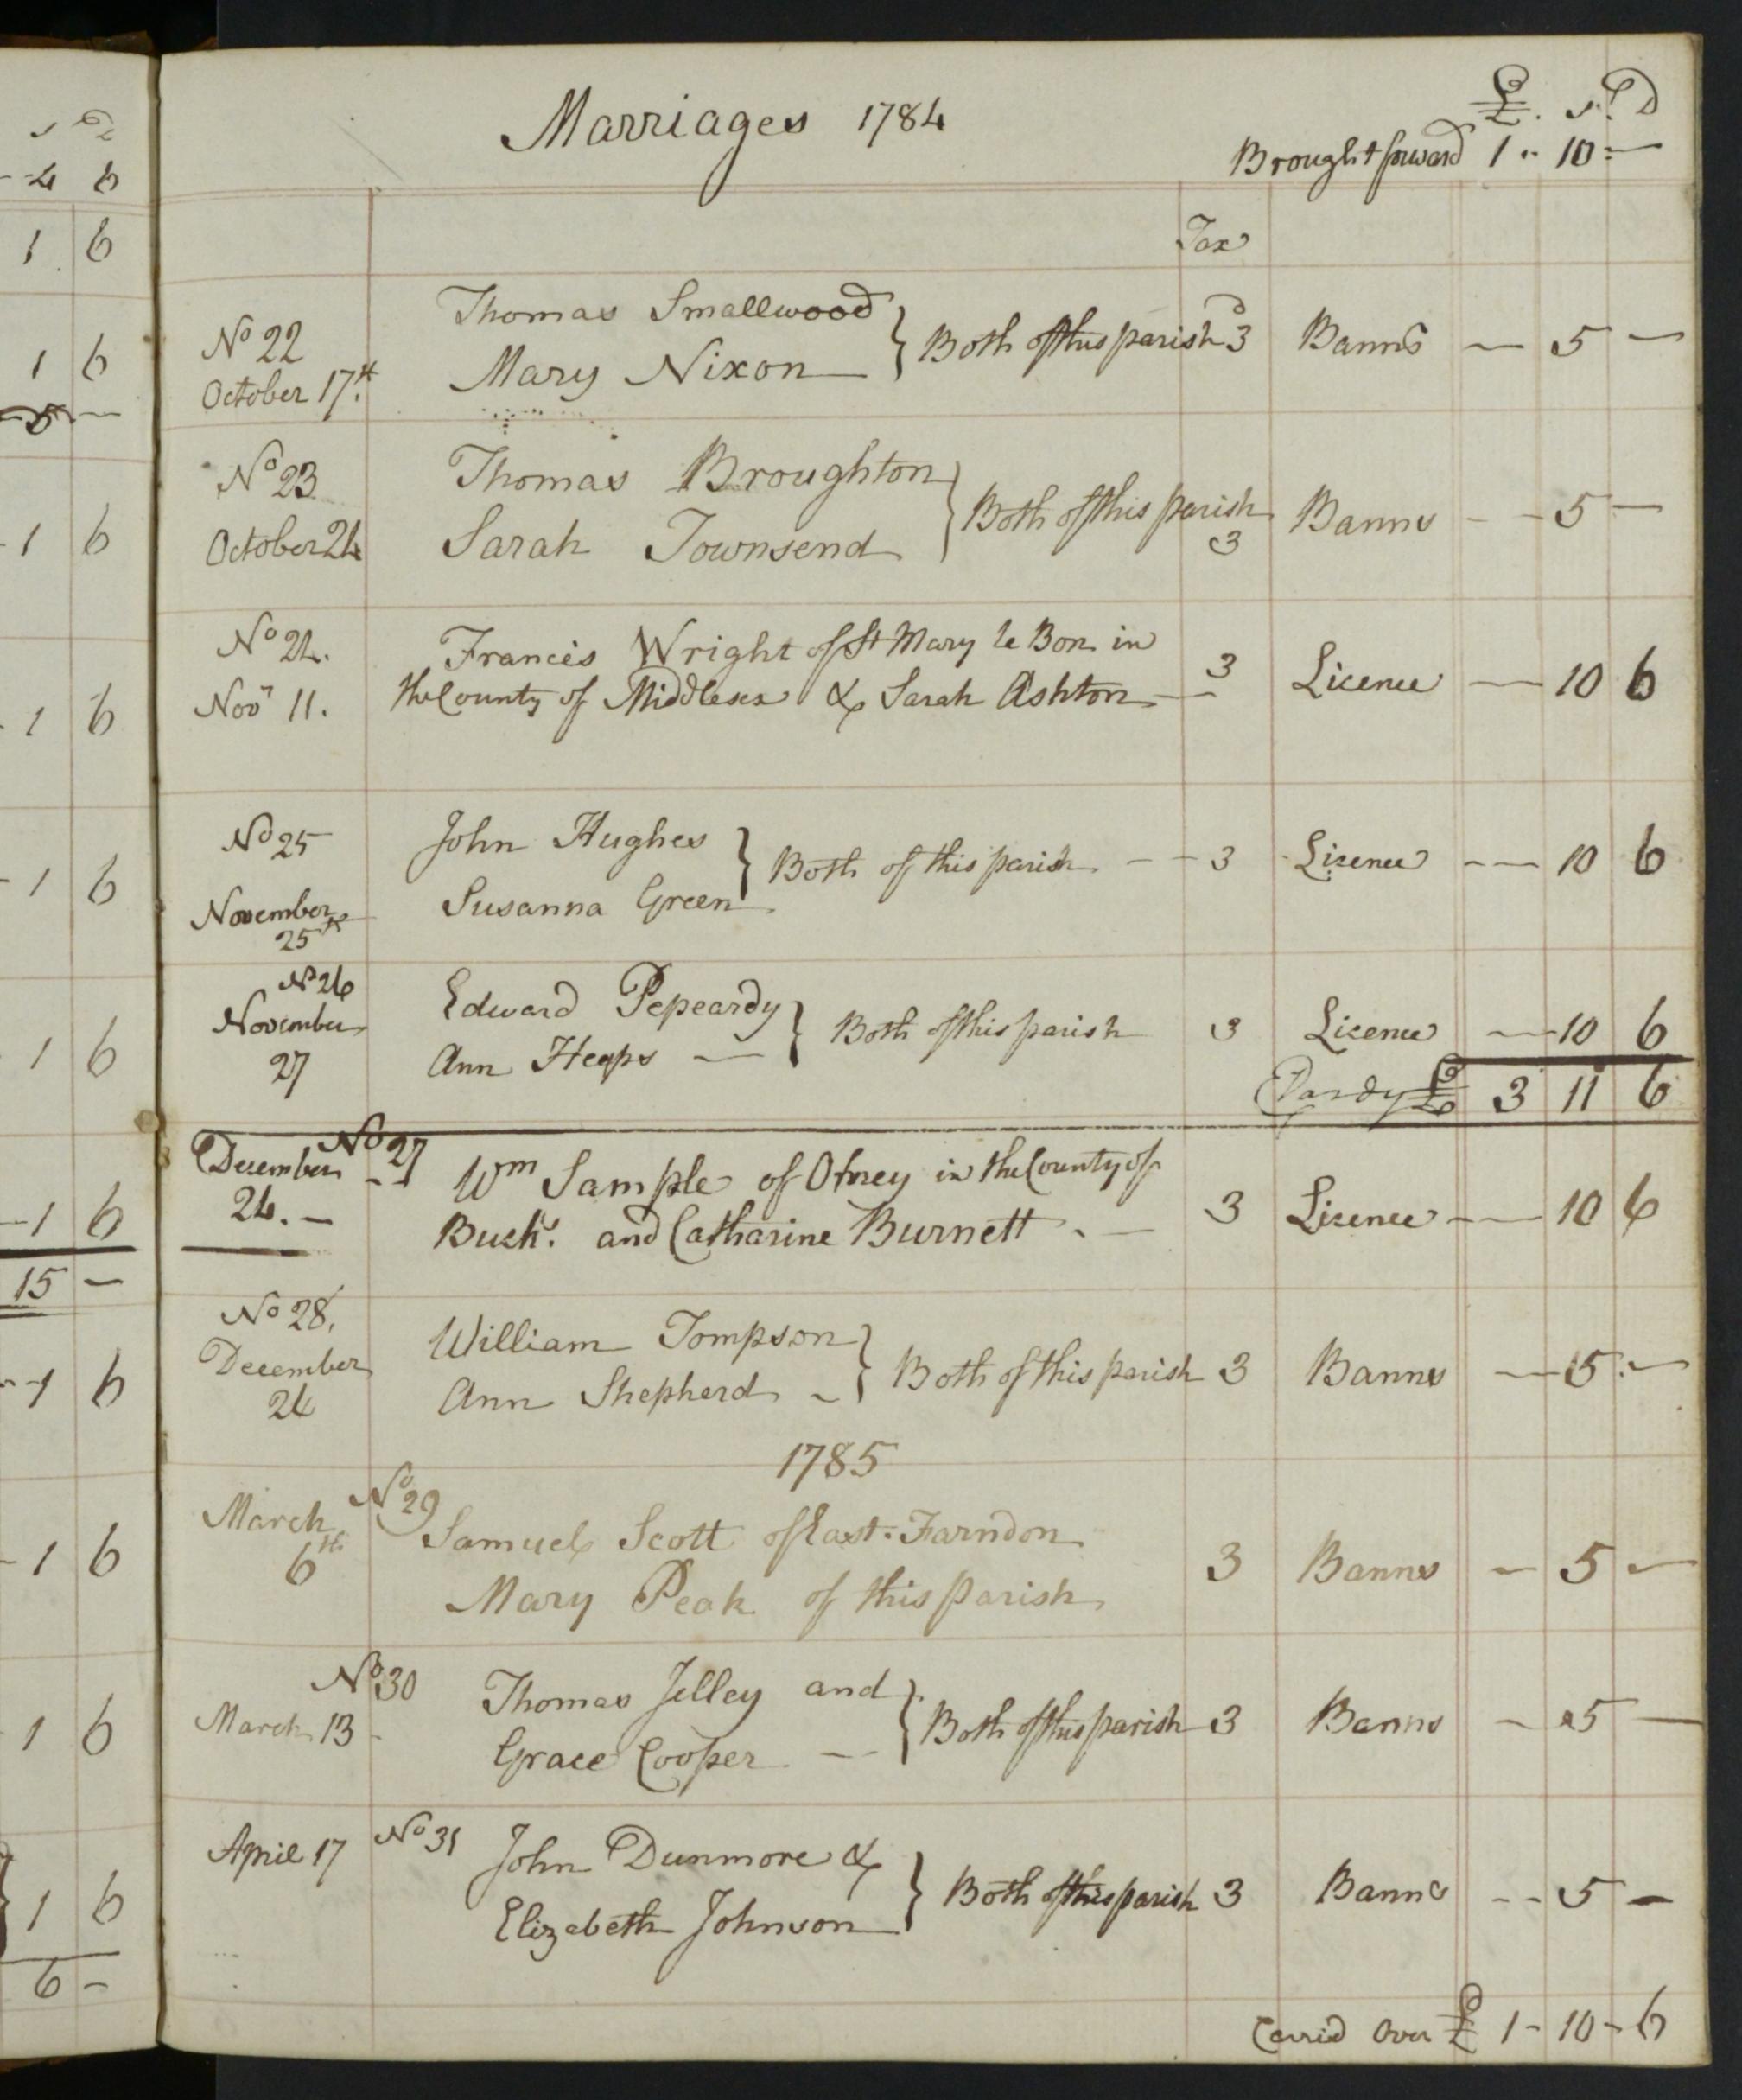 Marriages 1784
£. s. D
Brought forward 1 .. 10 : —
Tax
No 22
October 17th
Thomas Smallwood
Mary Nixon — } Both of this parish 3d Banns — 5 —
No 23
October 24
Thomas Broughton
Sarah Townsend } Both of this parish 3 Banns - - 5 —
No 24.
Novr 11.
Francis Wright of St Mary le Bon in
the County of Middlesex & Sarah Ashton — 3 Licence — 10 6
No 25
November
25th
John Hughes
Susanna Green } Both of this parish - - 3 Licence - — 10 6
No 26
November
27
Edward Pepeardy
Ann Heaps — } Both of this parish 3 Licence — 10 6
£ 3 11 6
No 27
December
24. —
Wm Sample of Olney in the County of
Bucks. and Catharine Burnett . — 3 Licence — 10 6
No 28.
December
26
William Tompson
Ann Shepherd - } Both of this parish 3 Banns — 5. —
1785
No 29
March
6th
Samuel Scott of East. Farndon
Mary Peak of this parish 3 Banns — 5 —
No 30
March 13 -
Thomas Jelley and
Grace Cooper — } Both of this parish 3 Banns — 5 —
April 17 No 31
John Dunmore &
Elizabeth Johnson } Both of this parish 3 Banns - - 5 —
Carrid Over £ 1 - 10 - 6
s D
- 4 6
1 6
1 6
- 5 —
- 1 6
- 1 6
- 1 6
1 6
- 1 6
15 —
- 1 6
- 1 6
- 1 6
} 1 6
6 -